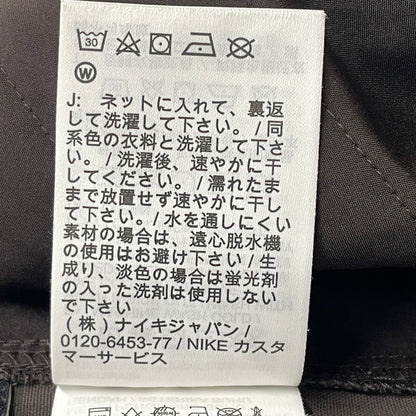 30
W
J: ネットに入れて、裏返
して洗濯して下さい。/ 同
系色の衣料と洗濯して下さ
い。/ 洗濯後、速やかに干
してください。/ 濡れたま
まで放置せず速やかに干し
て下さい。/ 水を通しにくい
素材の場合は、遠心脱水機
の使用はお避け下さい / 生
成り、淡色の場合は蛍光剤
の入った洗剤は使用しない
で下さい
(株) ナイキジャパン /
0120-6453-77 / NIKE カスタ
マーサービス